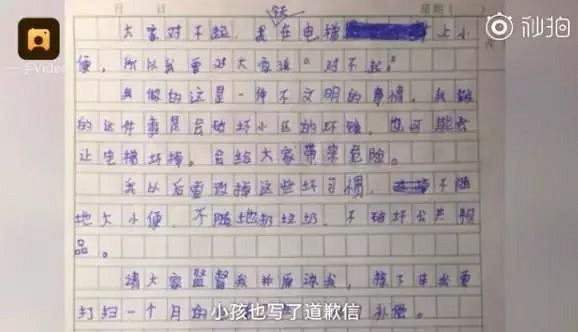 月 日 星期（ ）
大家对不起，我今天在电梯上小
便，所以我要对大家说“对不起”
我做的这是一件不文明的事情，我做
的这件事是会破坏小区的环境，也可能会
让电梯坏掉。会给大家带来危险。
我以后要改掉这些坏习惯，不随
地大小便，不随地扔垃圾，不破坏公共物
品。
请大家监督我并原谅我，接下来我要
打扫一个月的 补偿。
小孩也写了道歉信
一手Video
秒拍